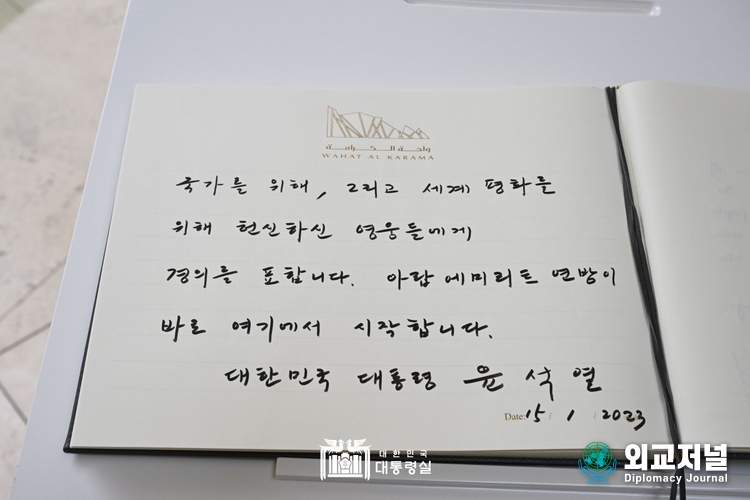 واحة الكرامة
WAHAT AL KARAMA
국가를 위해, 그리고 세계 평화를
위해 헌신하신 영웅들에게
경의를 표합니다. 아랍에미리트 연방이
바로 여기에서 시작합니다.
대한민국 대통령 윤석열
Date: 15 / 1 / 2023
대한민국
대통령실
외교저널
Diplomacy Journal